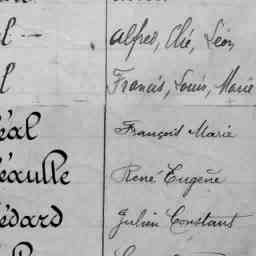 l — Alfred, Elie, Léon
l Francis, Louis, Marie
éal François Marie
éaulle René Eugène
édard Julien Constant